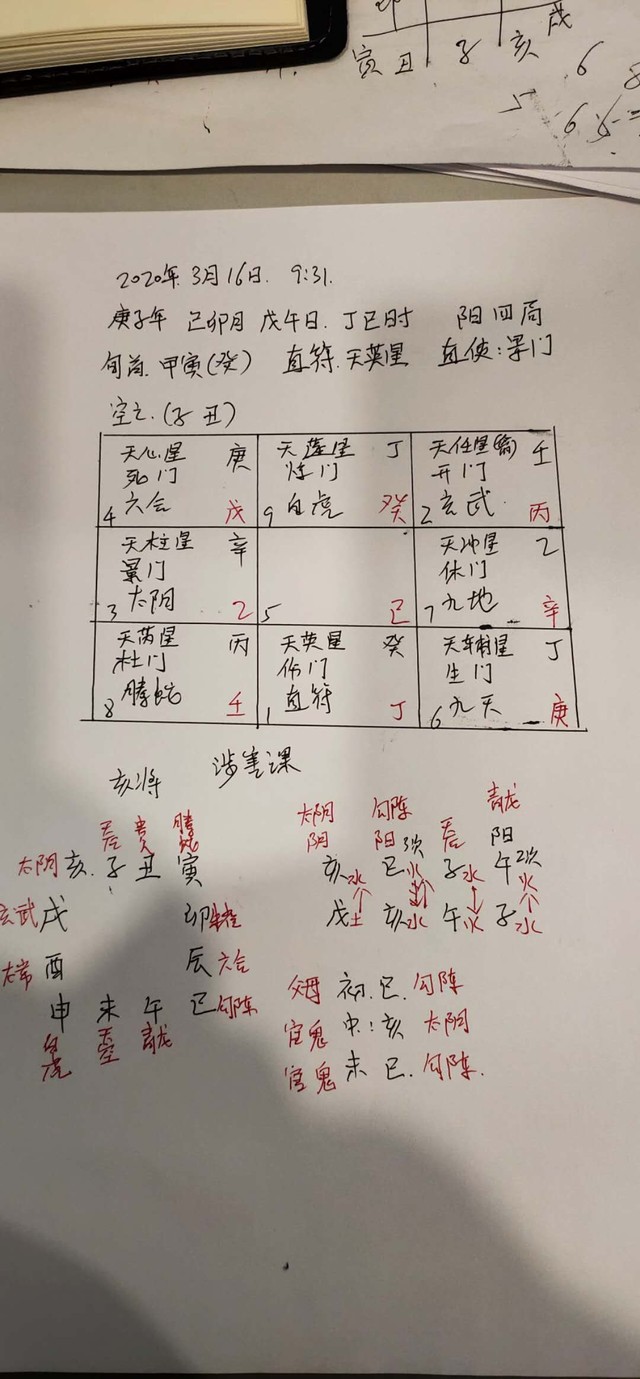 寅 丑 子 亥 戌
6
8
5
6
2020年 3月16日. 9:31.
庚子年 己卯月 戊午日. 丁巳时 阳四局
旬首. 甲寅(癸) 直符. 天英星 直使: 景门
空亡. (子 丑)
天心星 庚 天蓬星 丁 天任星 壬
死门 惊门 开门
4 六合 戊 9 白虎 癸 2 玄武 丙
天柱星 辛 天冲星 乙
景门 休门
3 太阴 乙 5 己 7 九地 辛
天芮星 丙 天英星 癸 天辅星 丁
杜门 伤门 生门
8 腾蛇 壬 1 直符 丁 6 九天 庚
亥将 涉害课
天后 贵人 腾蛇 太阴 勾陈 天后 青龙
阴 阳 3次 阳
太阴 亥. 子 丑 寅 亥水 巳火 子水 午火 2次
玄武 戌 卯朱雀 戌土 亥水 午火 子水
太常 酉 辰 六合
申 未 午 巳勾陈
白虎 天空 青龙
父母 初. 巳. 勾陈
官鬼 中: 亥 太阴
官鬼 末 巳. 勾陈.